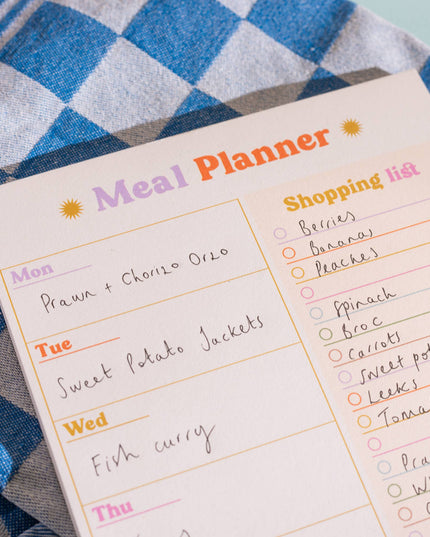 Meal Planner
Shopping list
Mon
Prawn + Chorizo Orzo
Tue
Sweet Potato Jackets
Wed
Fish curry
Thu
Berries
Bananas
Peaches
Spinach
Broc
Carrots
Sweet pot
Leeks
Toma
Pra